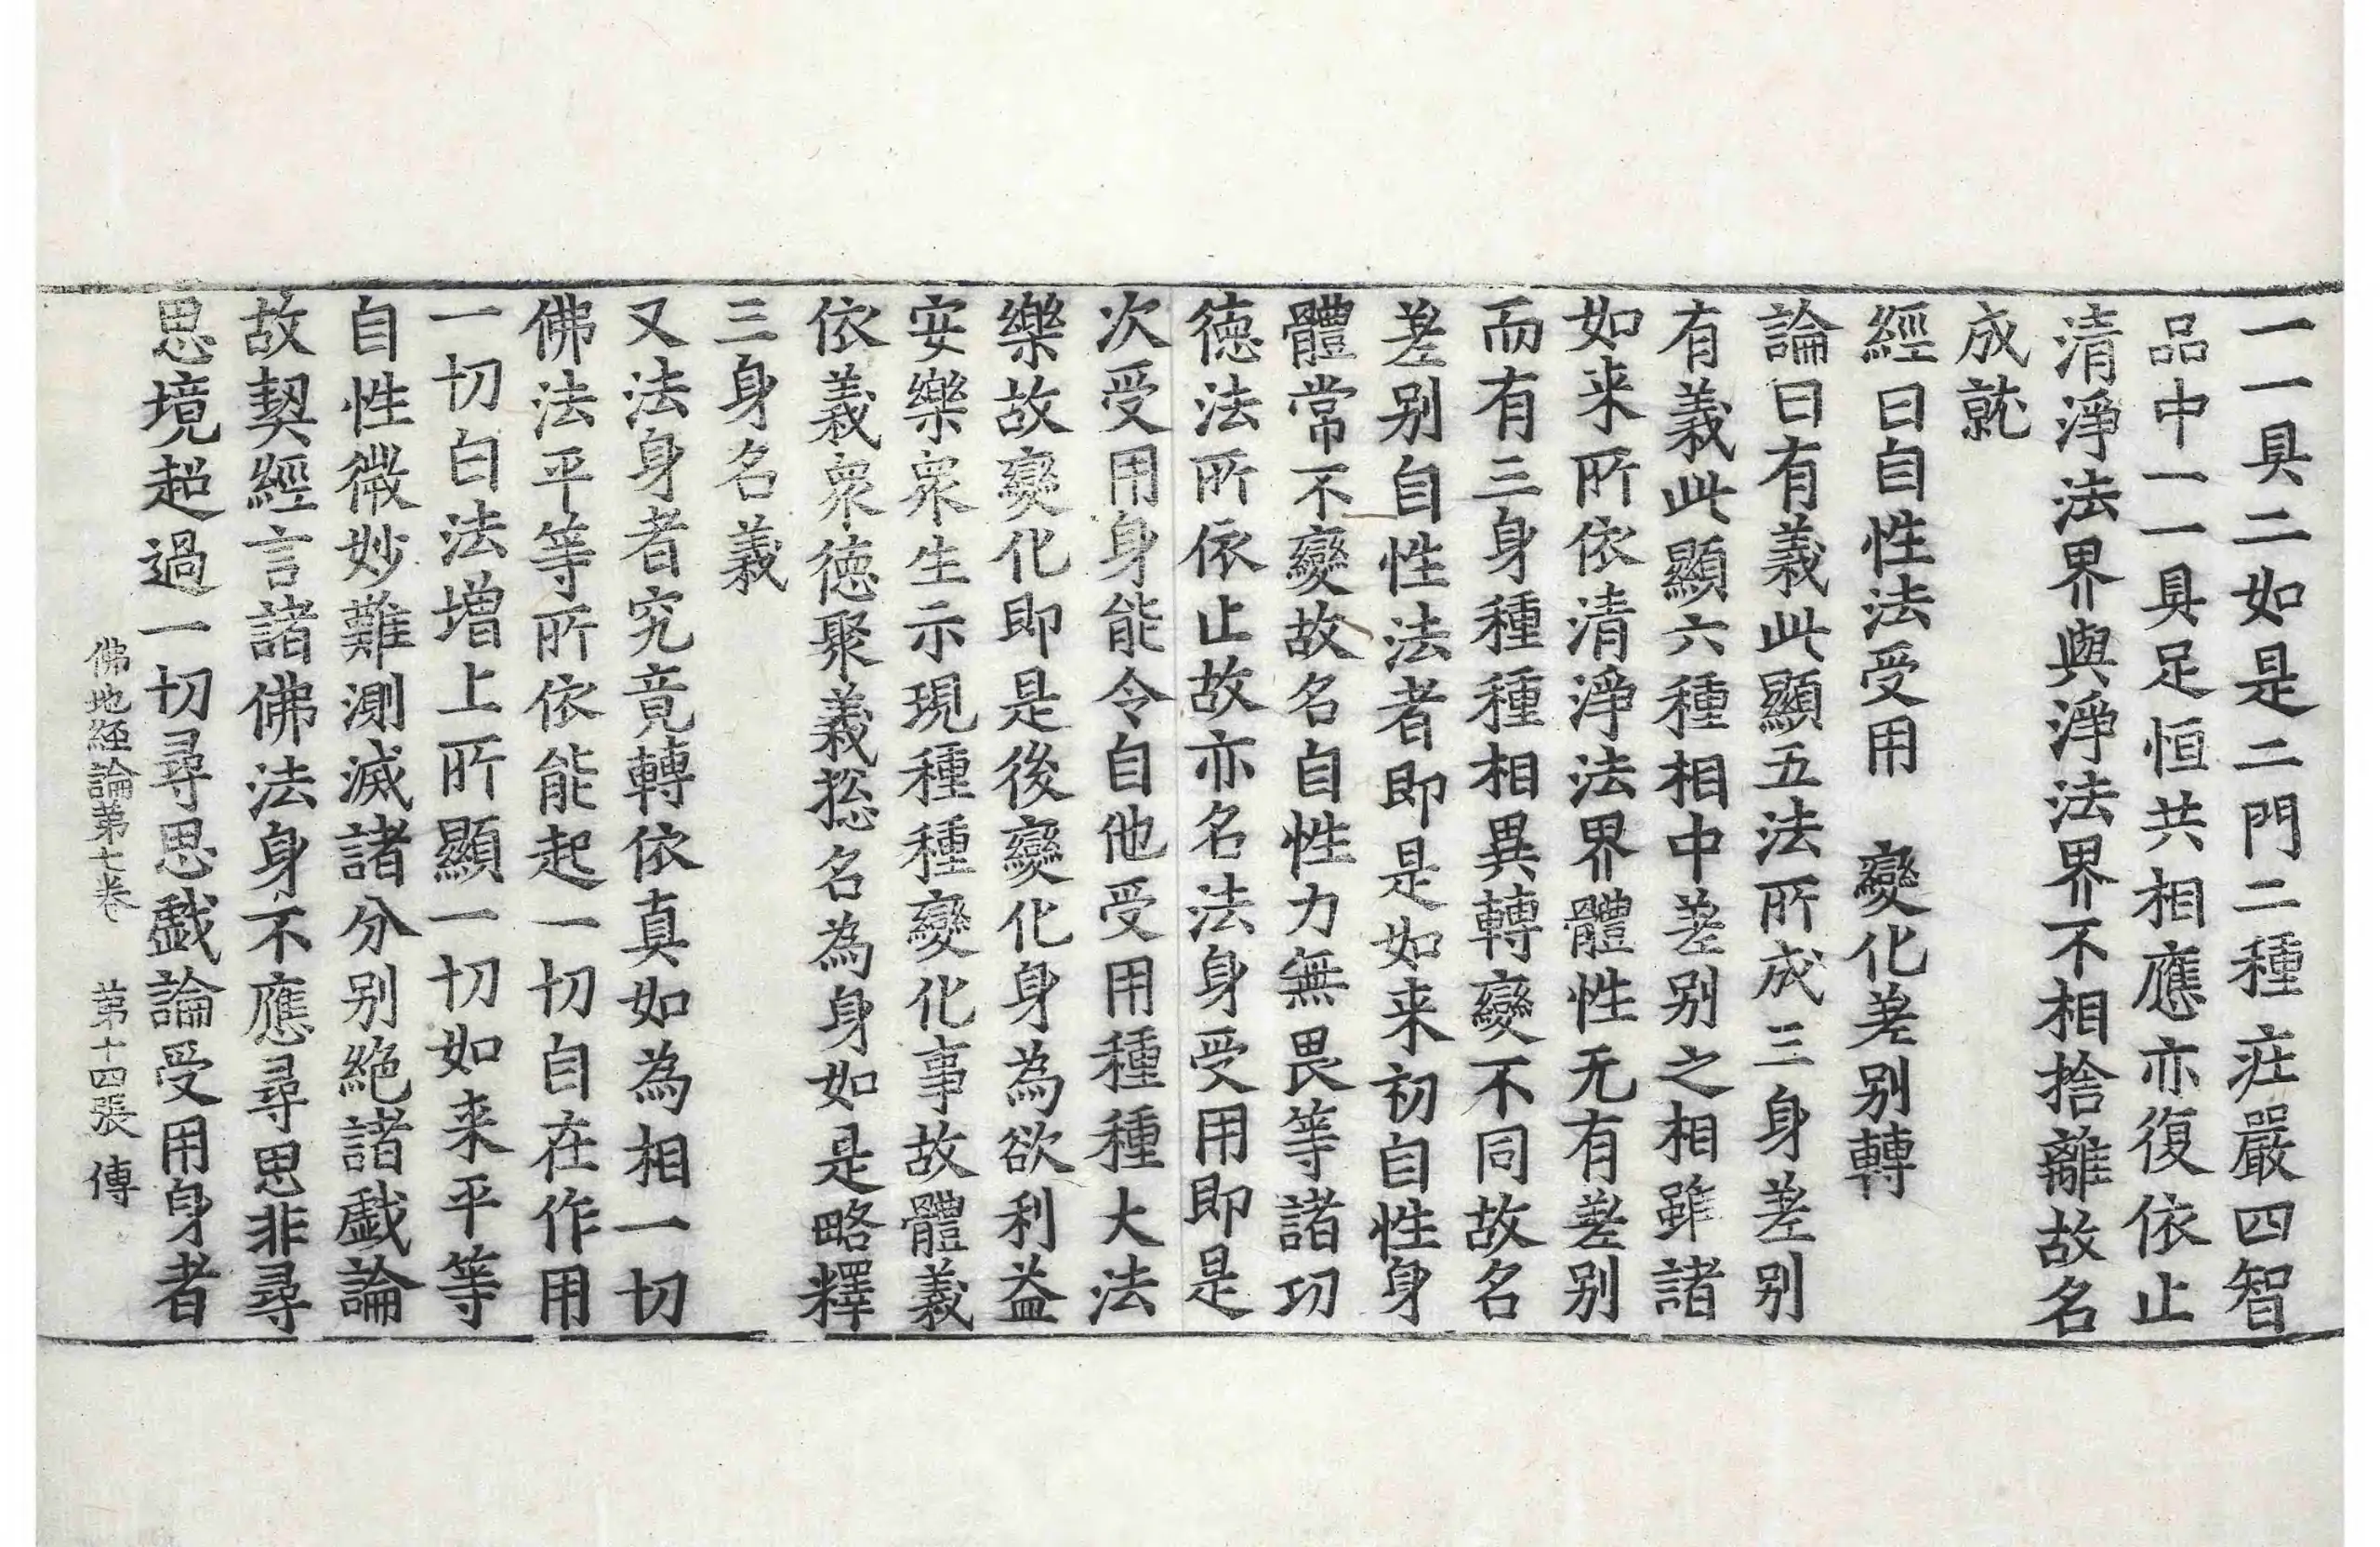 一一具二如是二門二種莊嚴四智
品中一一具足恒共相應亦復依止
清淨法界與淨法界不相捨離故名
成就
經曰自性法受用　變化差别轉
論曰有義此顯五法所成三身差别
有義此顯六種相中差别之相雖諸
如来所依清淨法界體性无有差别
而有三身種種相異轉變不同故名
差别自性法者即是如来初自性身
體常不變故名自性力無畏等諸功
德法所依止故亦名法身受用即是
次受用身能令自他受用種種大法
樂故變化即是後變化身為欲利益
安樂衆生示現種種變化事故體義
依義衆德聚義揔名為身如是略釋
三身名義
又法身者究竟轉依真如為相一切
佛法平等所依能起一切自在作用
一切白法增上所顯一切如来平等
自性微妙難測滅諸分别絶諸戲論
故契經言諸佛法身不應尋思非尋
思境超過一切尋思戲論受用身者
佛地經論第七卷　第十四張　傳